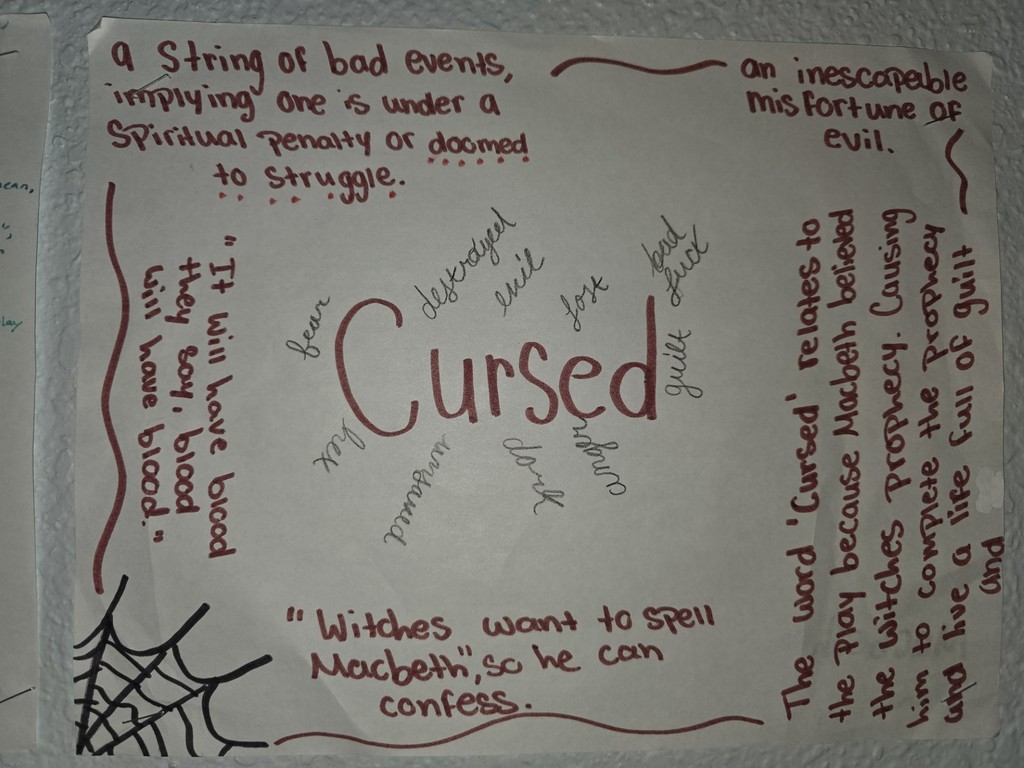 a string of bad events,
implying one is under a
spiritual penalty or doomed
to struggle.
an inescapeable
misfortune of
evil.
"It will have blood
they say, blood
will have blood."
fear
destroyed
evil
lost
bad
luck
guilt
Cursed
hex
unsaved
trap
"Witches want to spell
Macbeth", so he can
confess.
The word 'Cursed' relates to
the play because Macbeth believed
the witches prophecy. Causing
him to complete the prophecy
and live a life full of guilt
and
ean,
lay